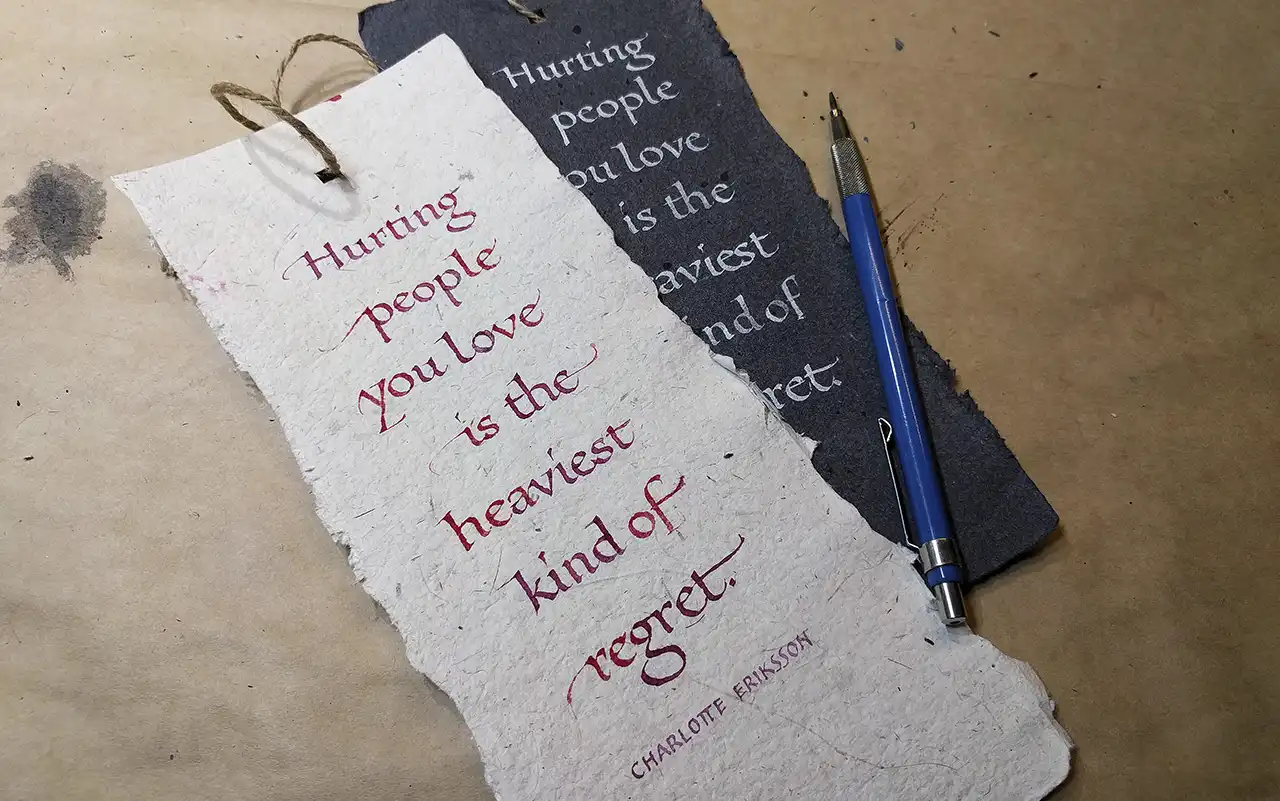 Hurting
people
you love
is the
heaviest
kind of
regret.
CHARLOTTE ERIKSSON
Hurting
people
ou love
is the
aviest
ind of
ret.